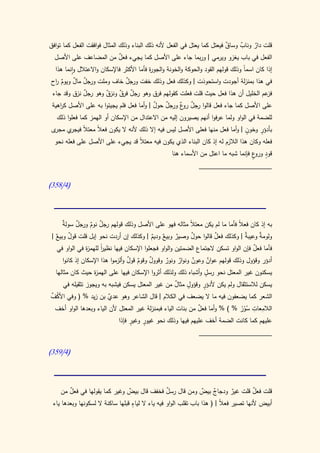 قلت دارٌ ونابٌ وساقٌ فيعتل كما يعتل في الفعل لأنه ذلك البناء وذلك المثال فوافقت الفعل كما توافق
الفعل في باب يغزو ويرمي { وربما جاء على الأصل كما يجيء فعلٌ من المضاعف على الأصل
إذا كان اسماً وذلك قولهم القود والحوكة والخونة والجورة فأما الأكثر فالإسكان والاعتلال وإنما هذا
في هذا بمنزلة أجودت واستحوذت { وكذلك فعل وذلك خفت ورجلٌ خاف وملت ورجلٌ مالٌ ويومٌ راح
فزعم الخليل أن هذا فعل حيث قلت فعلت كقولهم فرق وهو رجلٌ فرقٌ ونزقٌ وهو رجلٌ نزق وقد جاء
على الأصل كما جاء فعل قالوا رجلٌ روعٌ ورجلٌ حولٌ { وأما فعل فلم يجيئوا به على الأصل كراهية
للضمة في الواو ولما عرفوا أنهم يصيرون إليه من الاعتدال من الإسكان أو الهمز كما فعلوا ذلك
بأدور وخونٍ { وأما فعل منها فعلى الأصل ليس فيه إلا ذلك لأنه لا يكون فعلاً معتلاً فيجرى مجرى
فعله وكان هذا اللازم له إذ كان البناء الذي يكون فيه معتلاً قد يجيء على الأصل على فعله نحو
قودٍ وروعٍ فإنما شبه ما اعتل من الأسماء هنا
(358/4)
به إذ كان فعلاً فأما ما لم يكن معتلاً مثاله فهو على الأصل وذلك قولهم رجلٌ نومٌ ورجلٌ سولةٌ
ولومةٌ وعيبةٌ { وكذلك فعلٌ قالوا حولٌ وصيرٌ وبيعٌ وديمٌ { وكذلك إن أردت نحو إبل قلت قولٌ وبيعٌ {
فأما فعلٌ فإن الواو تسكن لاجتماع الضمتين والواو فجعلوا الإسكان فيها نظيراً للهمزة في الواو في
أدؤر وقؤول وذلك قولهم عوانٌ وعونٌ ونوارٌ ونورٌ وقوولٌ وقومٌ قولٌ وألزموا هذا الإسكان إذ كانوا
يسكنون غير المعتل نحو رسلٍ وأشباه ذلك ولذلك آثروا الإسكان فيها على الهمزة حيث كان مثالها
يسكن للاستثقال ولم يكن لأدؤر وقؤولٍ مثالٌ من غير المعتل يسكن فيشبه به ويجوز تثقيله في
الشعر كما يضعفون فيه ما لا يضعف في الكلام { قال الشاعر وهو عديُّ بن زيد % ( وفي الأكُفِّ
اللامعاتِ سُوُرْ % ( % وأما فعلٌ من بنات الياء فبمنزلة غير المعتل لأن الياء وبعدها الواو أخف
عليهم كما كانت الضمة أخف عليهم فيها وذلك نحو غيورٍ وغيرٍ فإذا
(359/4)
قلت فعلٌ قلت غيرٌ ودجاجٌ بيضٌ ومن قال رسلٌ فخفف قال بيضٌ وغير كما يقولها في فعلٍ من
أبيض لأنها تصير فعلاً { ( هذا باب تقلب الواو فيه ياء لا لياءٍ قبلها ساكنة لا لسكونها وبعدها ياء